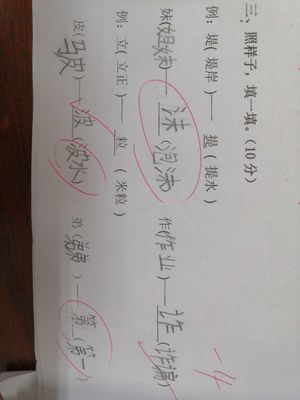 三、照样子，填一填。(10分)
例：堤(堤岸)——提(提水)
妹(姐妹)——沫(泡沫) 作(作业)——诈(诈骗)
例：立(立正)——粒(米粒)
皮(马皮)——波(波水) 弟(弟弟)——第(第一)
-4